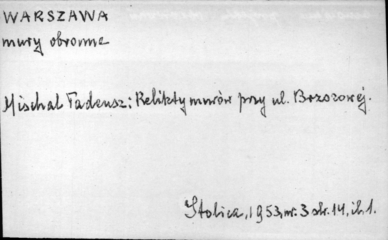 WARSZAWA
mury obronne
Mischal Tadeusz: Relikty murów przy ul. Brzozowej.
Stolica, 1953, nr. 3 str. 14, il. 1.